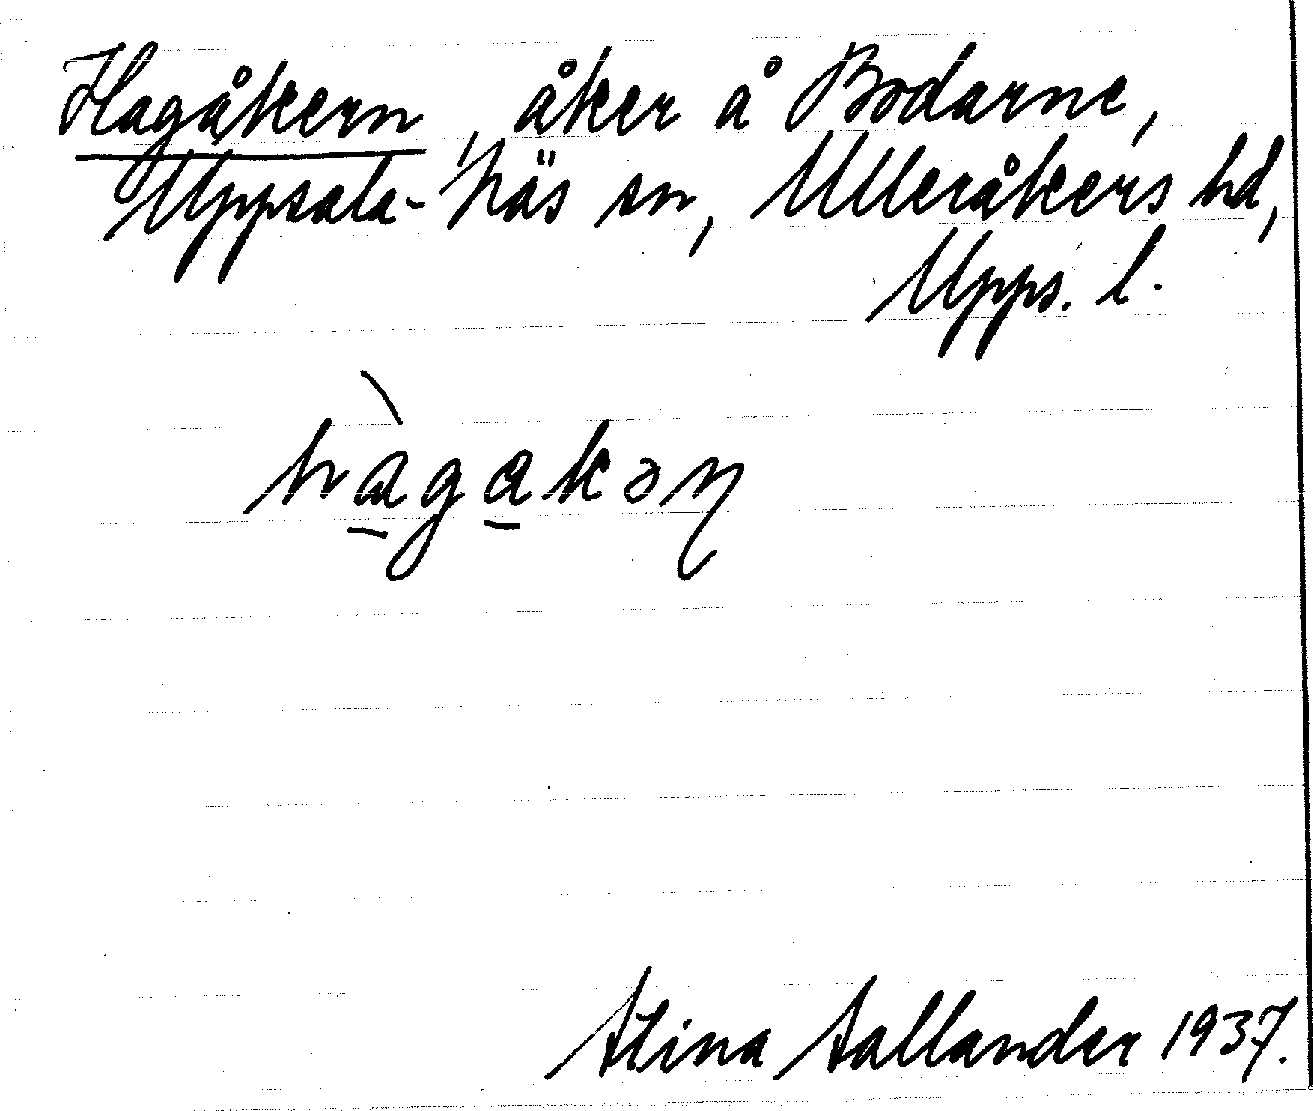 Hagåkern, åker å Bodarne,
Uppsala-Näs sn, Ulleråkers hd,
Upps. l.
hàgakəɳ
Stina Sallander 1937.